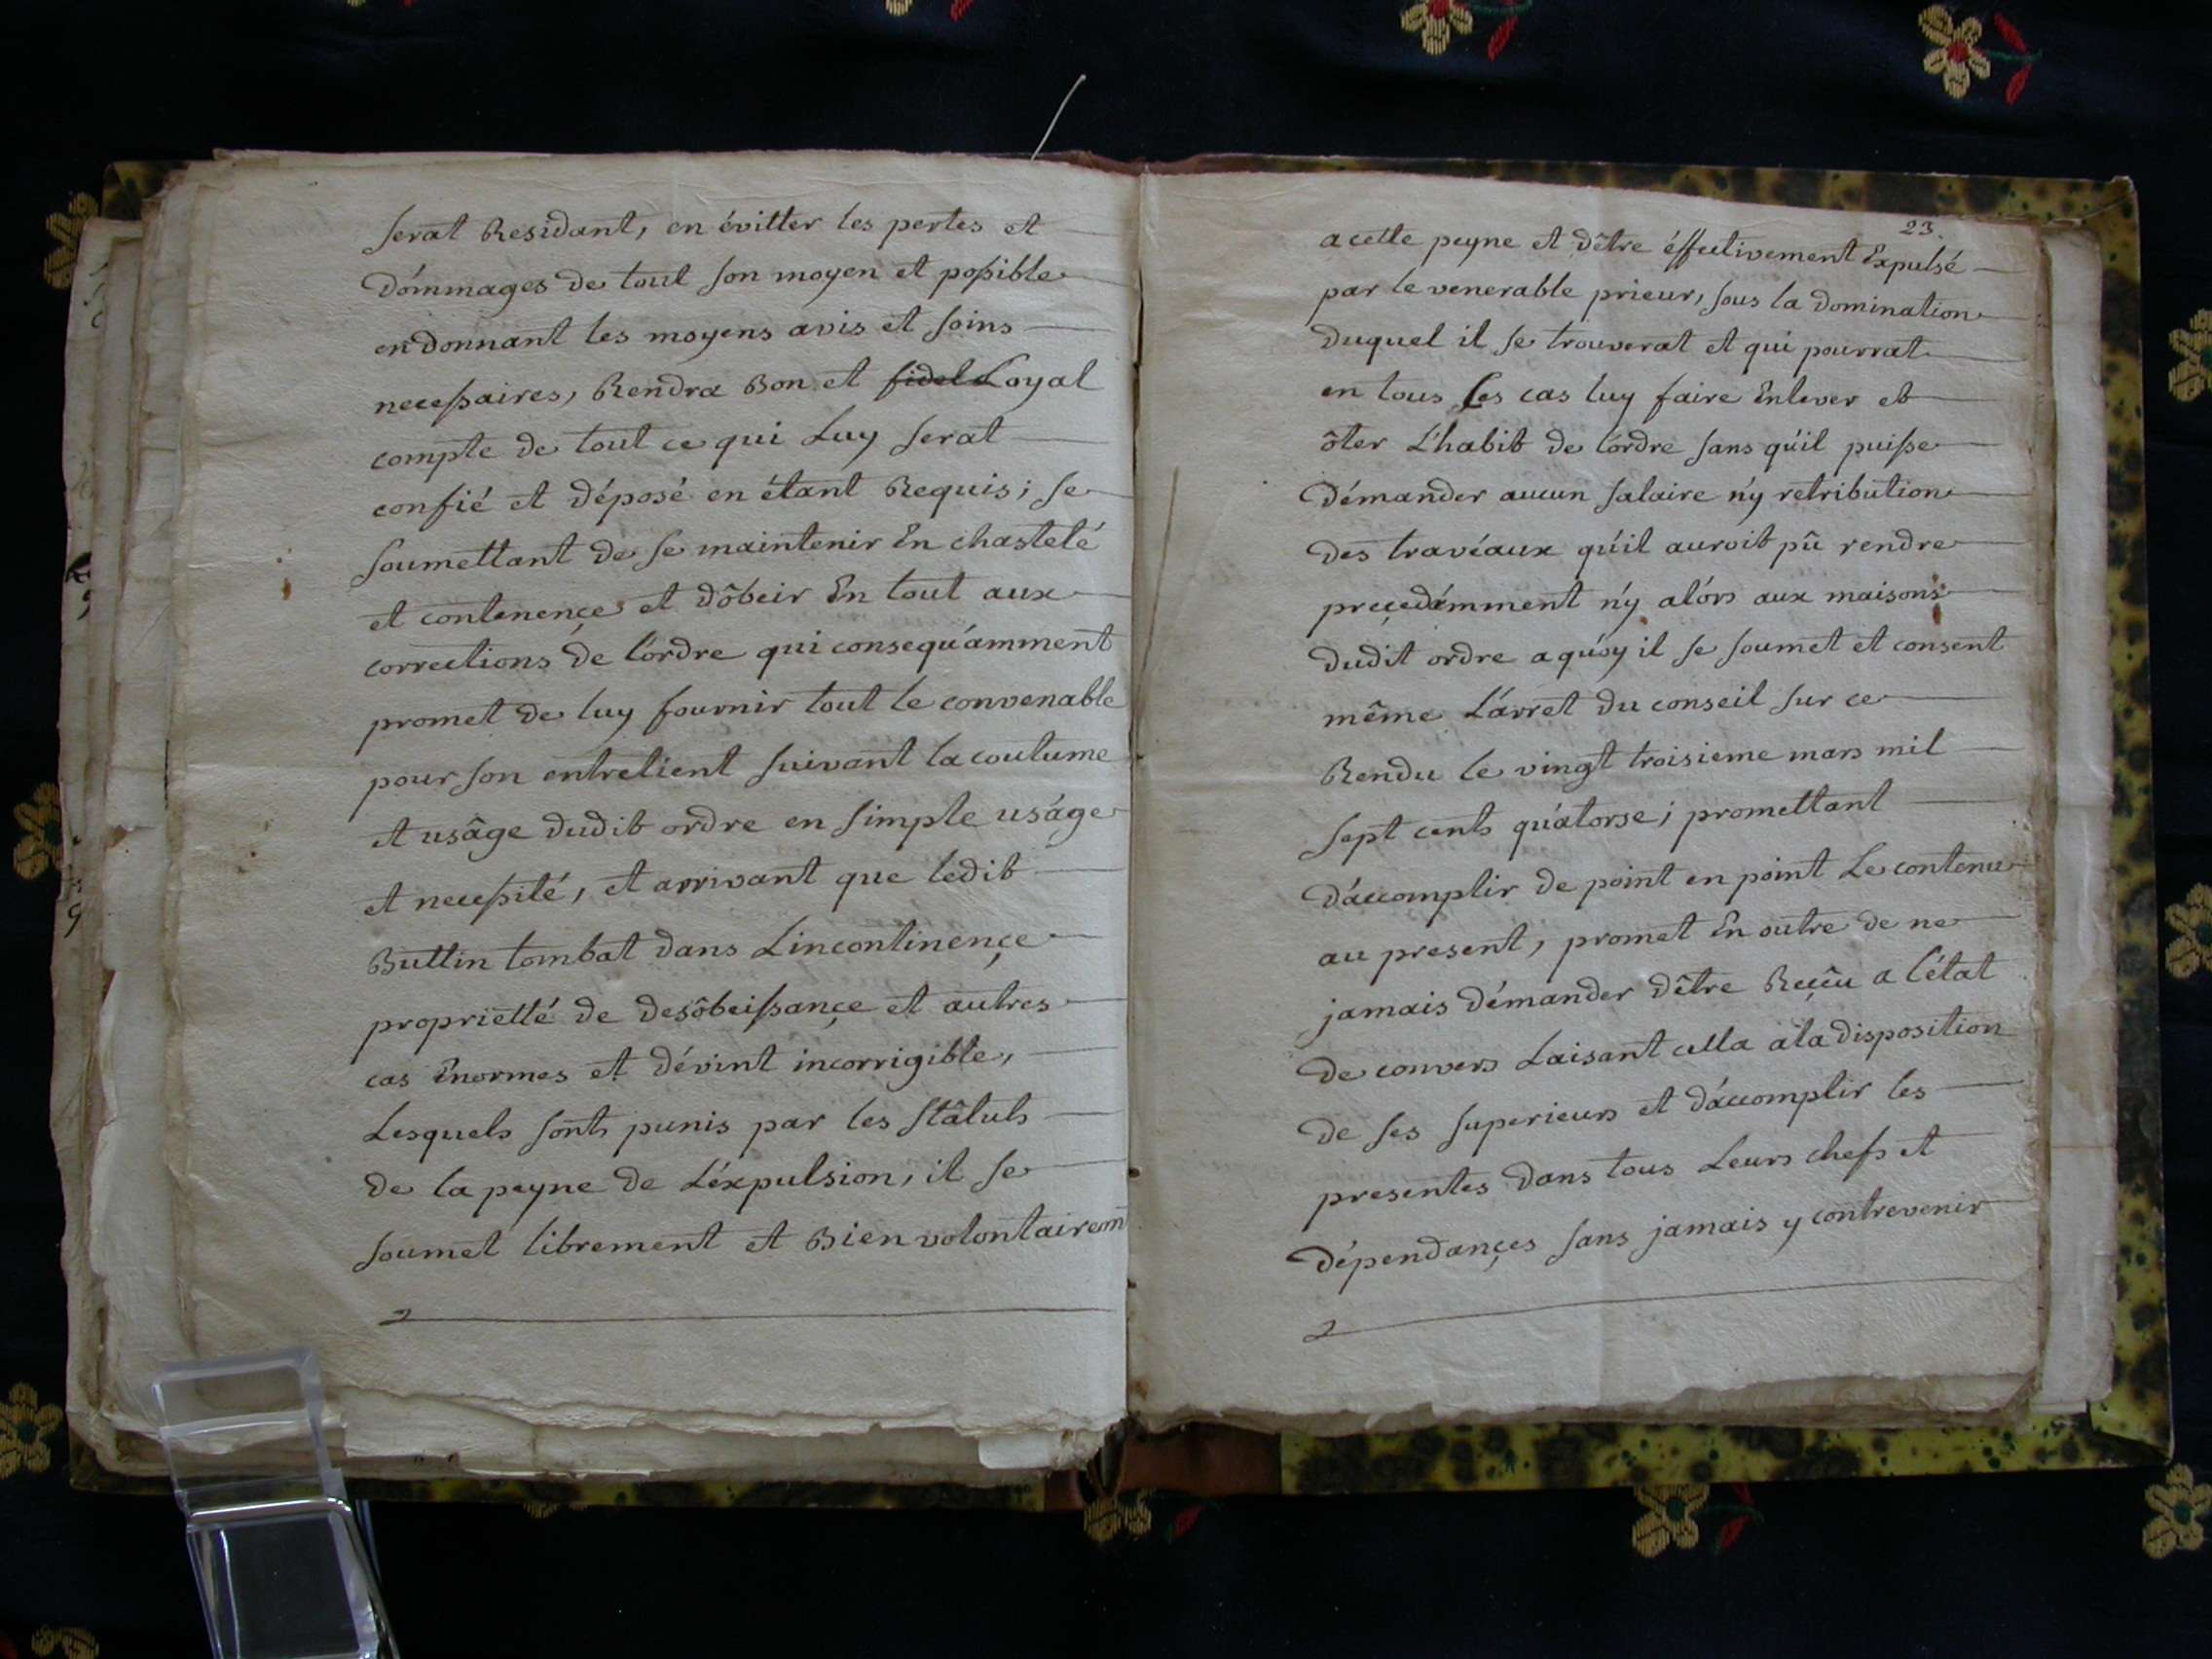 serat Residant, en évitter les pertes et
dómmages de tout son moyen et possible
en donnant les moyens avis et soins
necessaires, Rendra Bon et fidel Loyal
compte de tout ce qui Luy serat
confié et déposé en étant Requis; se
soumettant de se maintenir En chasteté
et contenençe et d'ôbeir En tout aux
corrections de l'órdre qui consequ'amment
promet de luy fournir tout le convenable
pour son entretient suivant la coutume
et usâge dudit ordre en simple uságe
et necessité, et arrivant que ledit
Buttin tombat dans L'incontinençe
proprietté de desôbeissançe et autres
cas Enormes et dévint incorrigible,
Lesquels sonts punis par les stâtuts
de la peyne de L'éxpulsion, il se
soumet librement et Bien volontairemt
23.
a cette peyne et d'être éffectivement Expulsé
par le venerable prieur, sous la domination
duquel il se trouverat et qui pourrat
en tous Les cas luy faire Enlever et
ôter L'habit de l'ordre sans qu'il puisse
démander aucun salaire n'y retribution
des travéaux qu'il auroit pû rendre
preçedémment n'y alórs aux maisons
dudit ordre a qu'oy il se soumet et consent
même L'árret du conseil sur ce
Rendu le vingt troisieme mars mil
sept cents quátorse; promettant
d'áccomplir de point en point Le contenu
au present, promet En outre de ne
jamais démander d'être Reçêu a l'état
de convers Laisant cella a la disposition
de ses superieurs et d'áccomplir les
presentes dans tous Leurs chefs et
dépendançes sans jamais y contrevenir